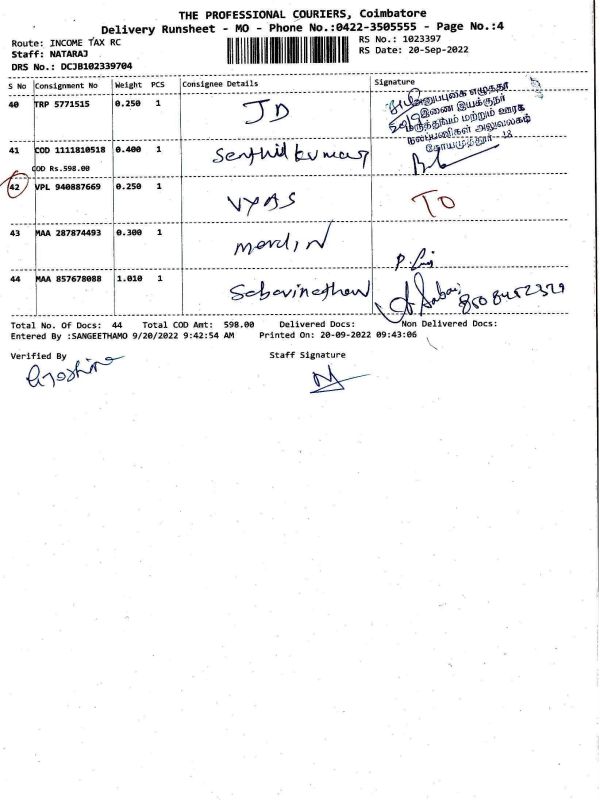 THE PROFESSIONAL COURIERS, Coimbatore
Delivery Runsheet - MO - Phone No.:0422-3505555 - Page No.:4
Route: INCOME TAX RC
RS No.: 1023397
Staff: NATARAJ
RS Date: 20-Sep-2022
DRS No.: DCJB102339704
S No Consignment No Weight PCS Consignee Details Signature
40 TRP 5771515 0.250 1 JD
அனுப்புகை எழுத்தர்
இணை இயக்குநர்
மருத்துவம் மற்றும் ஊரக
நலப்பணிகள் அலுவலகம்
கோயமுத்தூர் - 18
41 COD 1111810518 0.400 1 Senthil kumar
COD Rs.598.00
42 VPL 940887669 0.250 1 VYAS TO
43 MAA 287874493 0.300 1
44 MAA 857678088 1.010 1 Sabarinathan
Total No. Of Docs: 44 Total COD Amt: 598.00 Delivered Docs: Non Delivered Docs:
Entered By :SANGEETHAMO 9/20/2022 9:42:54 AM Printed On: 20-09-2022 09:43:06
Verified By Staff Signature